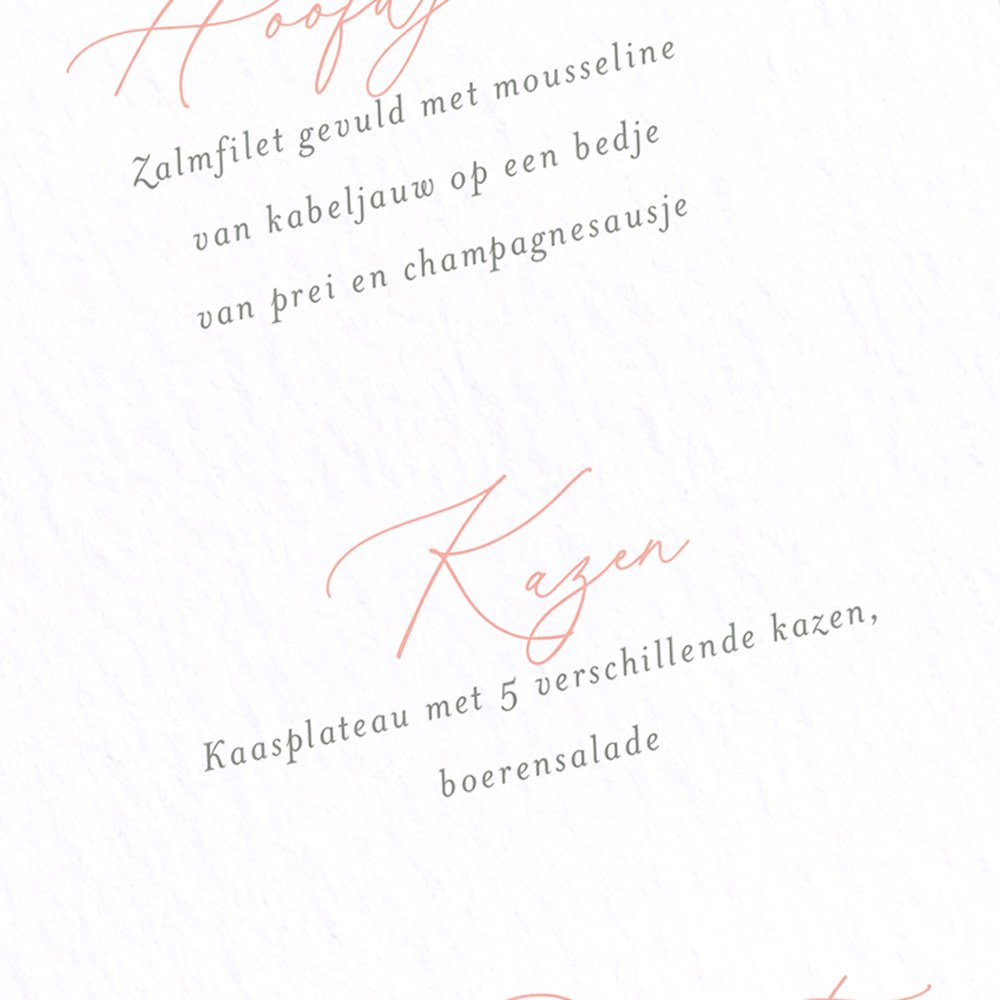 Zalmfilet gevuld met mousseline
van kabeljauw op een bedje
van prei en champagnesausje
Kazen
Kaasplateau met 5 verschillende kazen,
boerensalade